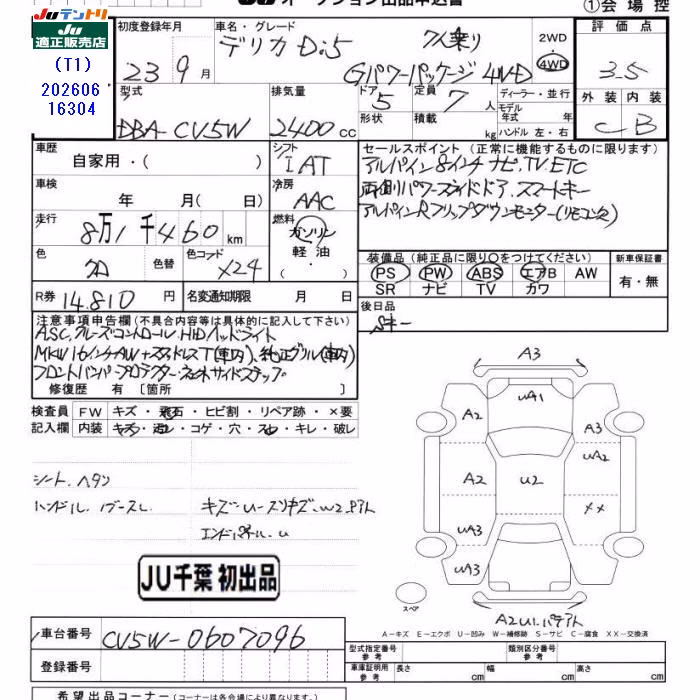 JUテントリ
JU オークション出品申込書
①会場控
適正販売店
(T1)
202606
16304
初度登録年月
23 9月
車名・グレード
デリカ D:5 7人乗り
Gパワーパッケージ 4WD
2WD
・
4WD
評価点
3.5
外装 内装
C B
型式
DBA-CV5W
排気量
2400 cc
ドア 5
形状
定員 7 人
積載 kg
ディーラー・並行
モデル
年式 年
ハンドル 左・右
車歴
自家用・( )
シフト
IAT
セールスポイント (正常に機能するものに限ります)
アルパイン8インチナビ.TV.ETC
両側パワースライドドア.スマートキー
アルパインRフリップダウンモニター(リモコン欠)
車検
年 月( 日)
冷房
AAC
走行
8万1千460 km
燃料
ガソリン
軽油
・
色
色替
色コード
X24
装備品 (純正品に限り○をつけてください)
PS PW ABS エアB AW
SR ナビ TV カワ
新車保証書
有・無
R券 14.810 円
名変通知期限 月 日
後日品
Sキー
注意事項申告欄 (不具合内容等は具体的に記入して下さい)
ASC.クルーズコントロール.HIDヘッドライト
MKW16インチAW+スタッドレスT(車内).純正グリル(車内)
フロントバンパープロテクター.サイドステップ
修復歴 有 〔箇所 〕
検査員
記入欄
FW キズ・飛石・ヒビ割・リペア跡・×要
内装 キズ・汚レ・コゲ・穴・スレ・キレ・破レ
シート.ヘタン
ハンドル.
エンドパネル.u
JU千葉 初出品
A3
A2
uA1
A3
uA2
A2
u2
××
uA3
uA3
スペア
A2U1.
A-キズ E-エクボ U-凹み W-補修跡 S-サビ C-腐食 XX-交換済
車台番号
CV5W-0607096
登録番号
型式指定番号
参考
類別区分番号
参考
車庫証明用
参考
長さ cm
幅 cm
高さ cm
希望出品コーナー (コーナーは各会場により異なります。)